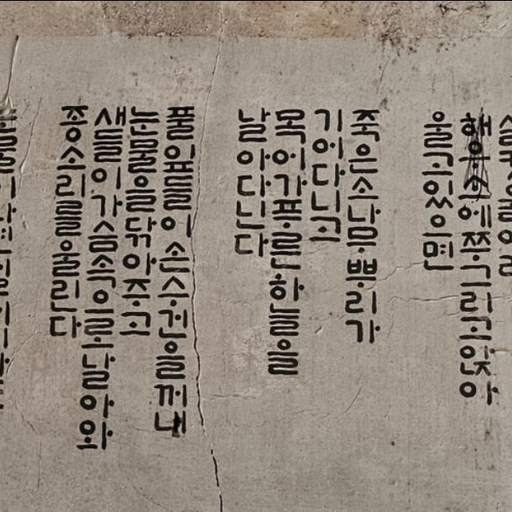 쭈그리고 앉아
울고 있으면
죽은 소나무 뿌리가
기어다니고
목어가 푸른 하늘을
날아다닌다
풀잎들이 손수건을 꺼내
눈물을 닦아주고
새들이 가슴속으로 날아와
종소리를 울린다